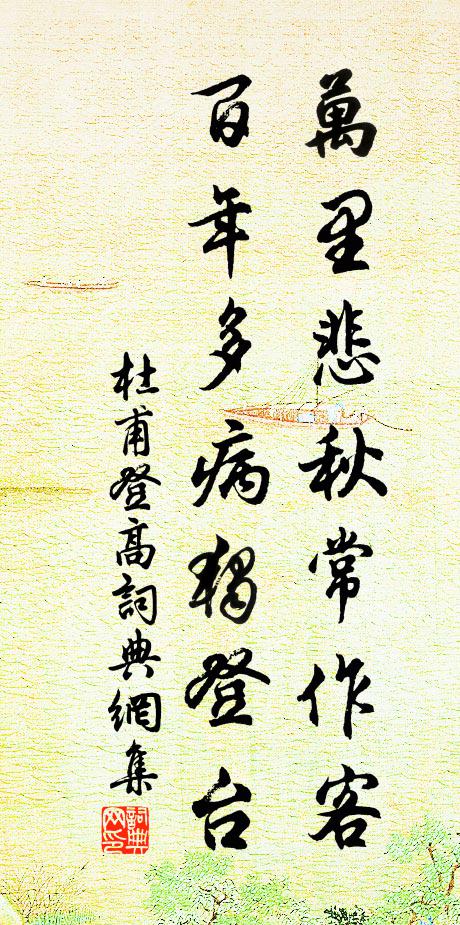 萬里悲秋常作客
百年多病獨登台
杜甫登高詞典網集
詞典网印